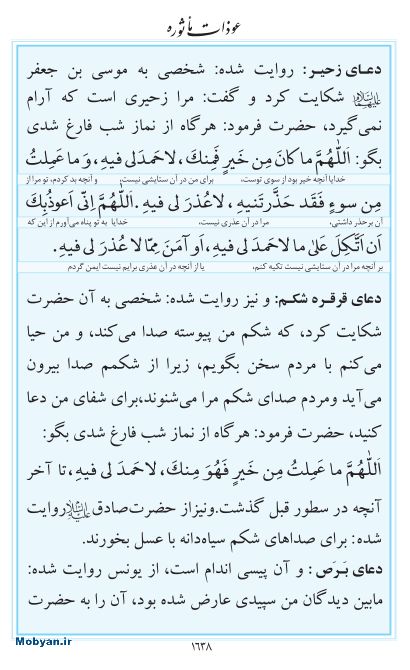 عوذات مأثوره
دعـای زحیـر: روایت شده: شخصی به موسی بن جعفر
علیهما‌السلام شکایت کرد و گفت: مرا زحیری است که آرام
نمی‌گیرد، حضرت فرمود: هرگاه از نماز شب فارغ شدی
بگو: اَللّٰهُمَّ ما کانَ مِن خَیرٍ فَمِنکَ، لاحَمدَ لی فیهِ، وَ ما عَمِلتُ
خدایا آنچه خیر بود از سوی توست، برای من در آن ستایشی نیست، و آنچه بد کردم، تو مرا از
مِن سوءٍ فَقَد حَذَّرتَنیهِ، لاعُذرَ لی فیهِ. اَللّٰهُمَّ اِنّی اَعوذُ بِکَ
آن برحذر داشتی، مرا در آن عذری نیست، خدایا به تو پناه می‌آورم از این که
اَن اَتَّکِلَ عَلیٰ ما لاحَمدَ لی فیهِ، اَو آمَنَ مِمّا لاعُذرَ لی فیهِ.
بر آنچه مرا در آن ستایشی نیست تکیه کنم، یا از آنچه در آن عذری برایم نیست ایمن گردم
دعای قرقـره شکـم: و نیز روایت شده: شخصی به آن حضرت
شکایت کرد، که شکم من پیوسته صدا می‌کند، و من حیا
می‌کنم با مردم سخن بگویم، زیرا از شکمم صدا بیرون
می‌آید ومردم صدای شکم مرا می‌شنوند،برای شفای من دعا
کنید، حضرت فرمود: هرگاه از نماز شب فارغ شدی بگو:
اَللّٰهُمَّ ما عَمِلتُ مِن خَیرٍ فَهُوَ مِنکَ، لاحَمدَ لی فیهِ، تا آخر
آنچه در سطور قبل گذشت.ونیزاز حضرت‌صادق علیه‌السلام روایت
شده: برای صداهای شکم سیاه‌دانه با عسل بخورند.
دعای بَـرَص: و آن پیسی اندام است، از یونس روایت شده:
مابین دیدگان من سپیدی عارض شده بود، آن را به حضرت
۱۶۳۸
Mobyan.ir